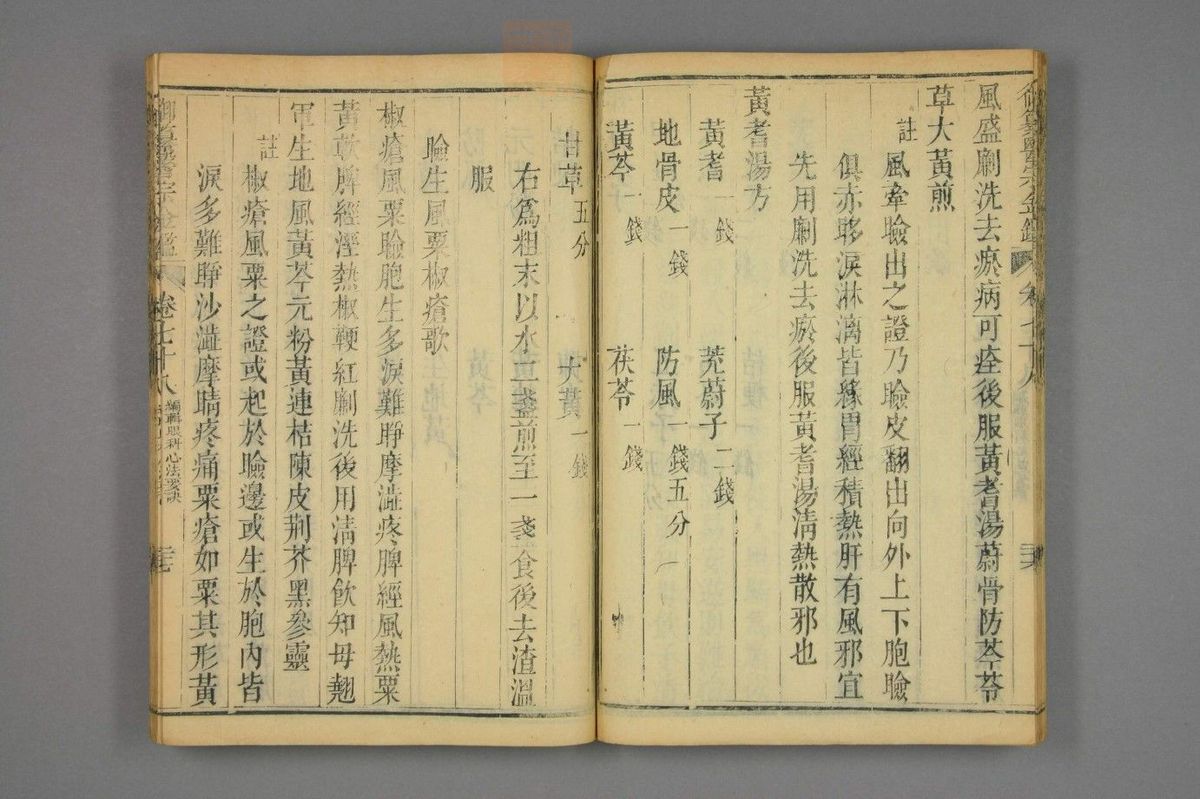 風盛劆洗去瘀病可痊後服黃耆湯蔚骨防芩苓
草大黃煎
註
風牽瞼出之證乃瞼皮翻出向外上下胞瞼
俱赤眵淚淋漓皆緣胃經積熱肝有風邪宜
先用劆洗去瘀後服黃耆湯淸熱散邪也
黃耆湯方
黃耆一錢 茺蔚子二錢
地骨皮一錢 防風一錢五分
黃芩一錢 茯苓一錢
甘草五分 大黃一錢
右爲粗末以水二盞煎至一盞食後去渣溫
服
瞼生風粟椒瘡歌
椒瘡風粟瞼胞生多淚難睜摩澁疼脾經風熱粟
黃軟脾經溼熱椒鞕紅劆洗後用淸脾飮知母翹
軍生地風黃芩元粉黃連桔陳皮荊芥黑參靈
註
椒瘡風粟之證或起於瞼邊或生於胞內皆
淚多難睜沙澁摩睛疼痛粟瘡如粟其形黃
御纂醫宗金鑑 卷七十八 編輯眼科心法要訣